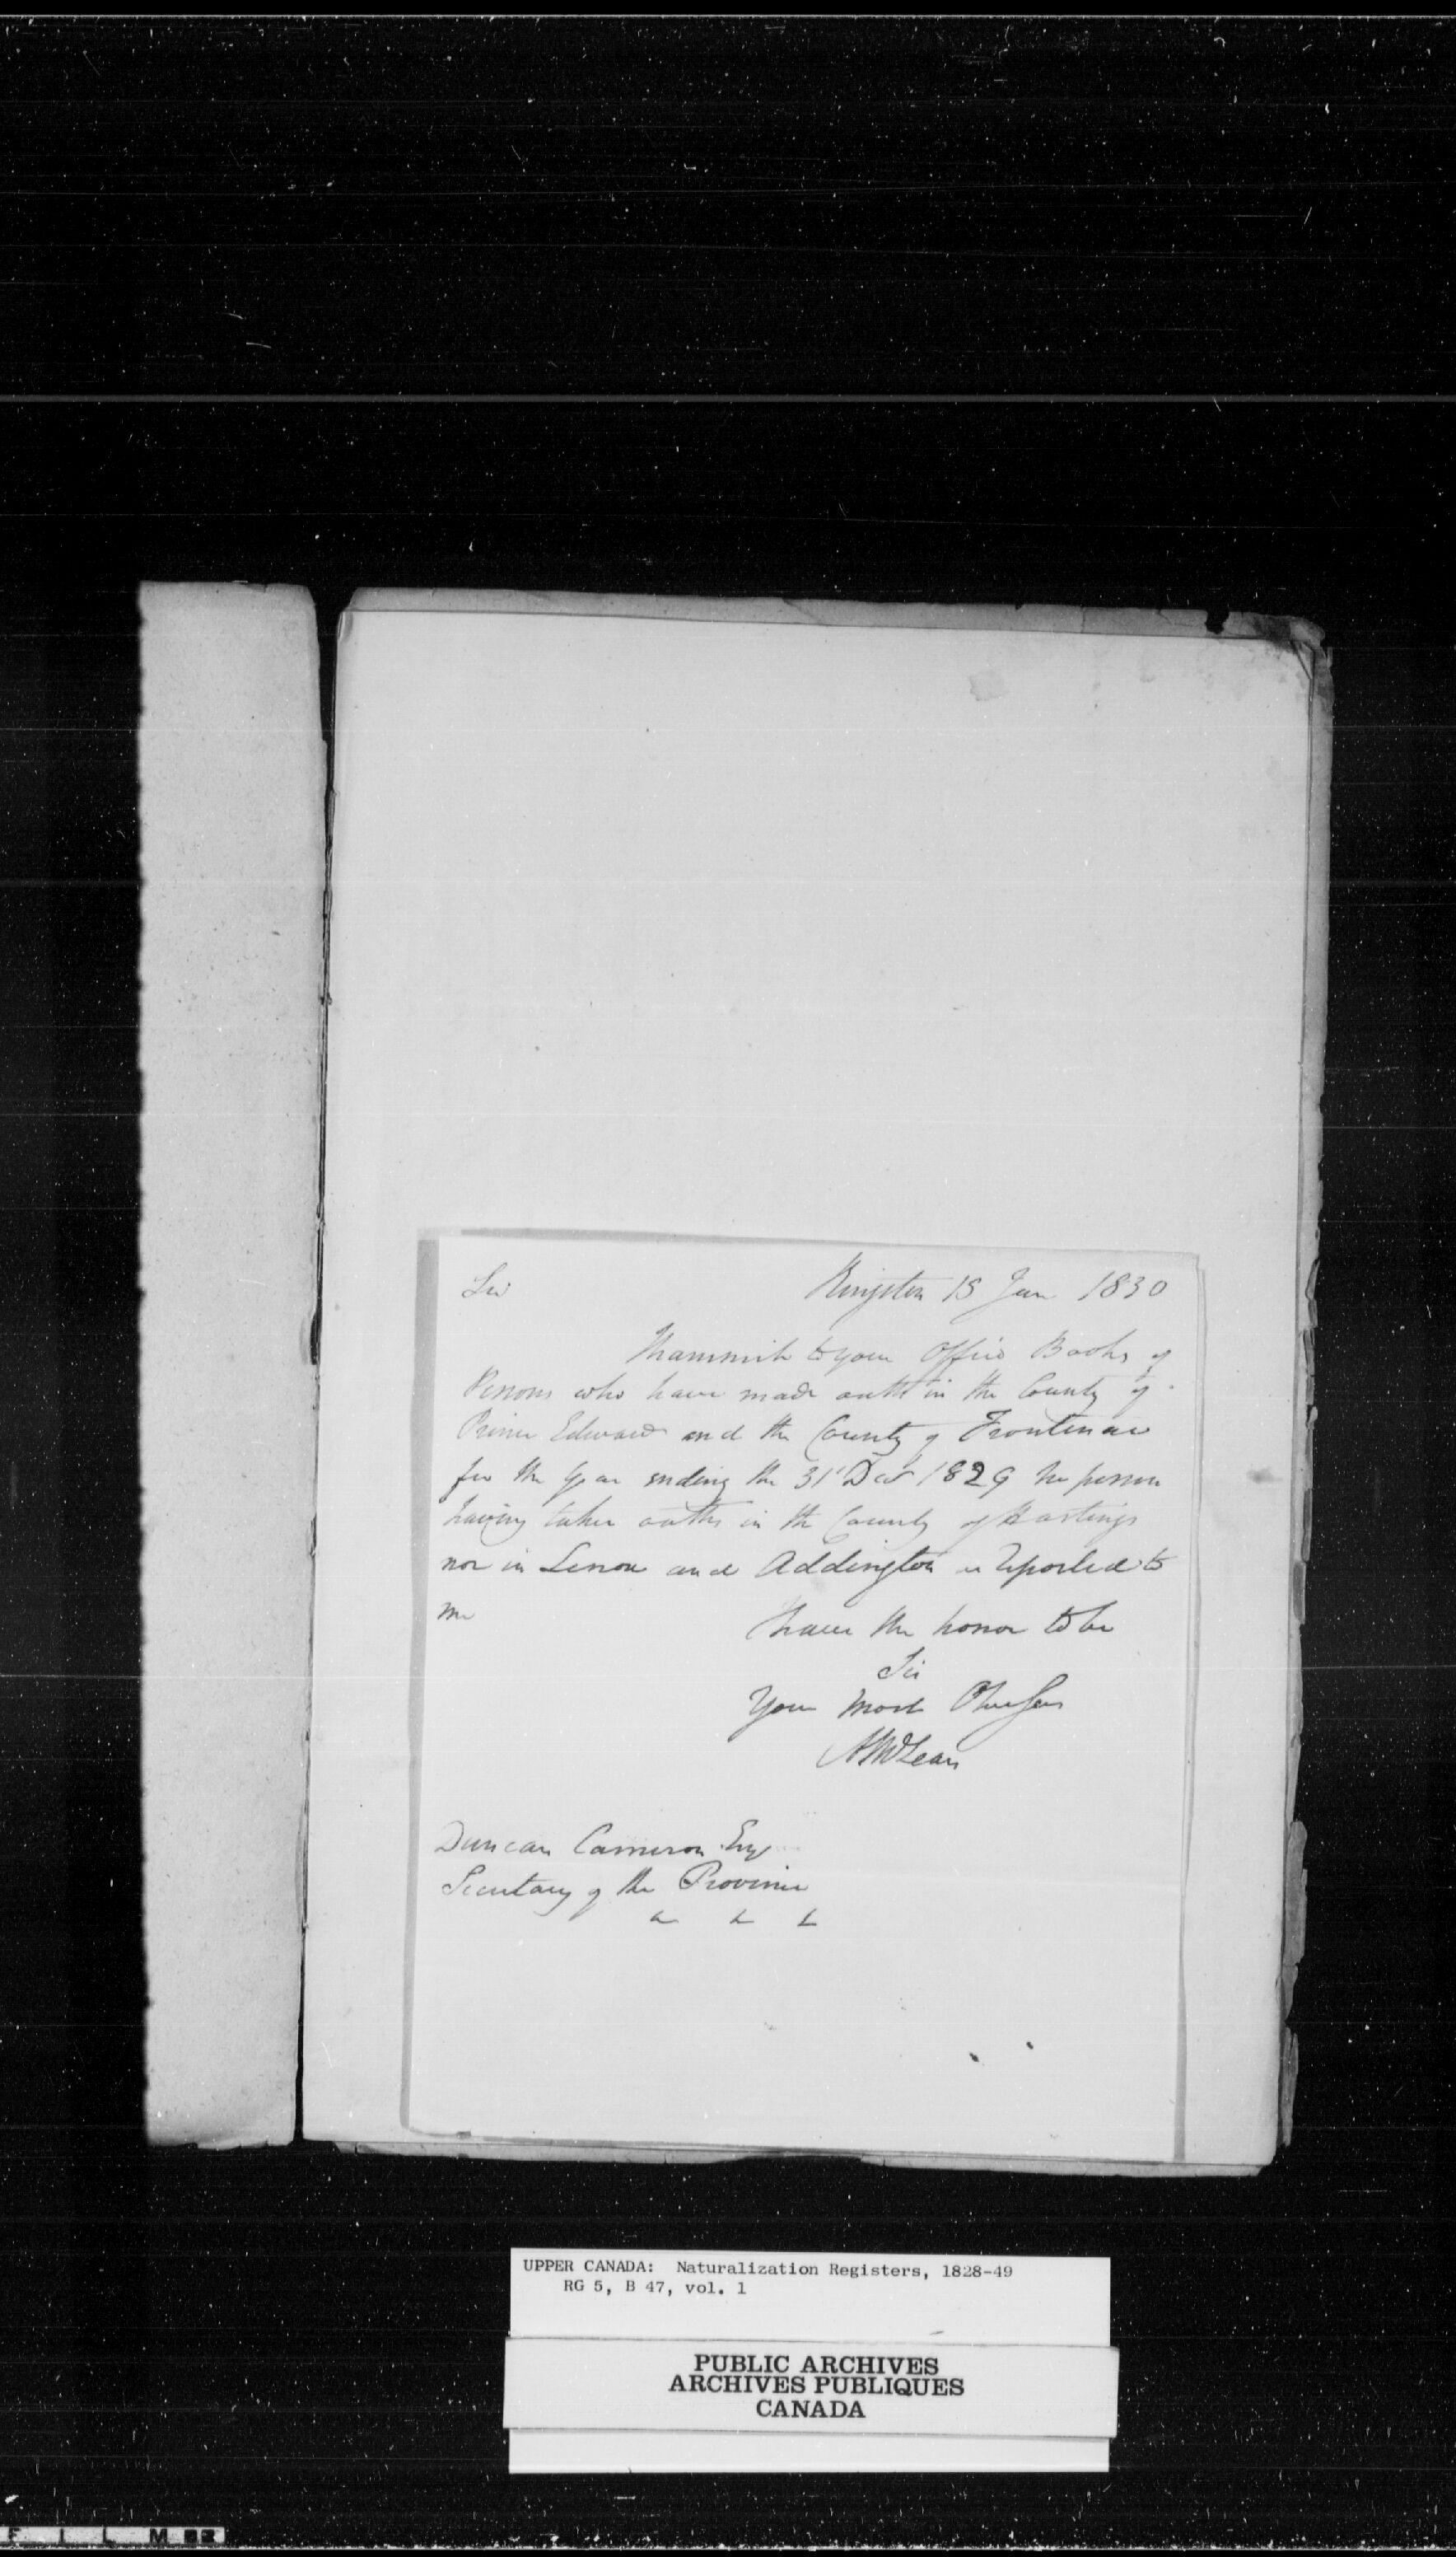 Sir Kingston 15 Jan 1830
Transmit to your Office Books of
Persons who have made oath in the County of
Prince Edward and the County of Frontenac
for the Year ending the 31st Dec 1829 no person
having taken oaths in the County of Hastings
nor in Lenox and Addington as reported to
me
I have the honor to be
Sir
Your most
A McLean
Duncan Cameron Esq
Secretary of the Province
UPPER CANADA: Naturalization Registers, 1828-49
RG 5, B 47, vol. 1
PUBLIC ARCHIVES
ARCHIVES PUBLIQUES
CANADA